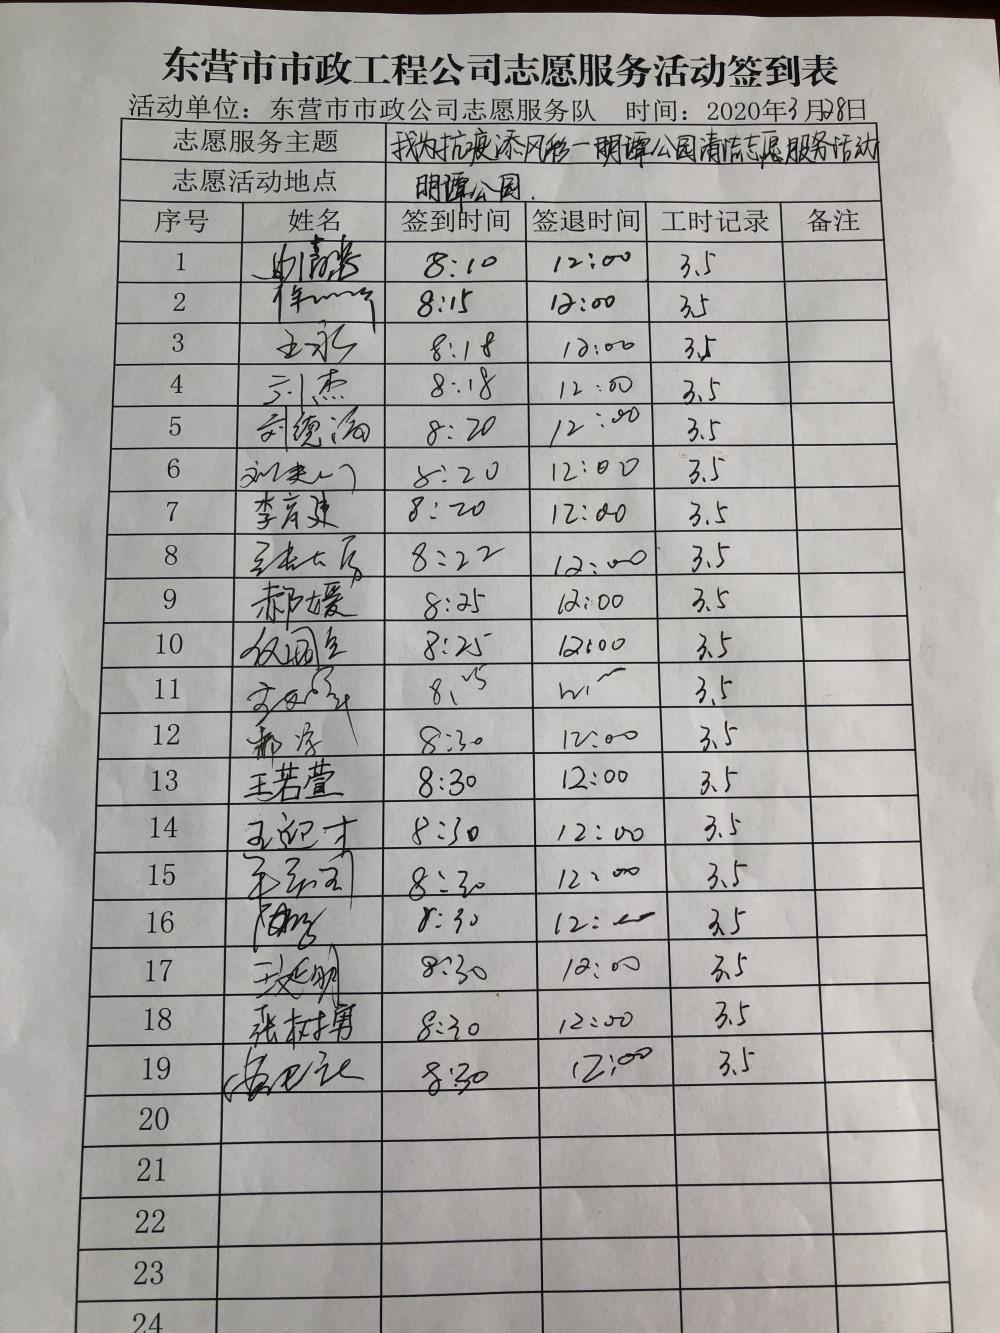 东营市市政工程公司志愿服务活动签到表
活动单位：东营市市政公司志愿服务队 时间：2020年3月28日
志愿服务主题 我为抗疫添风彩一明潭公园清洁志愿服务活动
志愿活动地点 明潭公园.
序号 姓名 签到时间 签退时间 工时记录 备注
1 8:10 12:00 3.5
2 8:15 12:00 3.5
3 王永 8:18 12:00 3.5
4 刘杰 8:18 12:00 3.5
5 刘德海 8:20 12:00 3.5
6 8:20 12:00 3.5
7 李育建 8:20 12:00 3.5
8 8:22 12:00 3.5
9 郝媛 8:25 12:00 3.5
10 8:25 12:00 3.5
11 3.5
12 郝 8:30 12:00 3.5
13 王若萱 8:30 12:00 3.5
14 王迎才 8:30 12:00 3.5
15 8:30 12:00 3.5
16 8:30 12: 3.5
17 王延明 8:30 12:00 3.5
18 张树勇 8:30 12:00 3.5
19 8:30 12:00 3.5
20
21
22
23
24